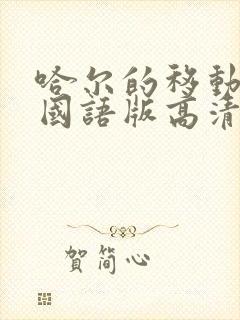 哈尔的移動
國語版高清
賀简心